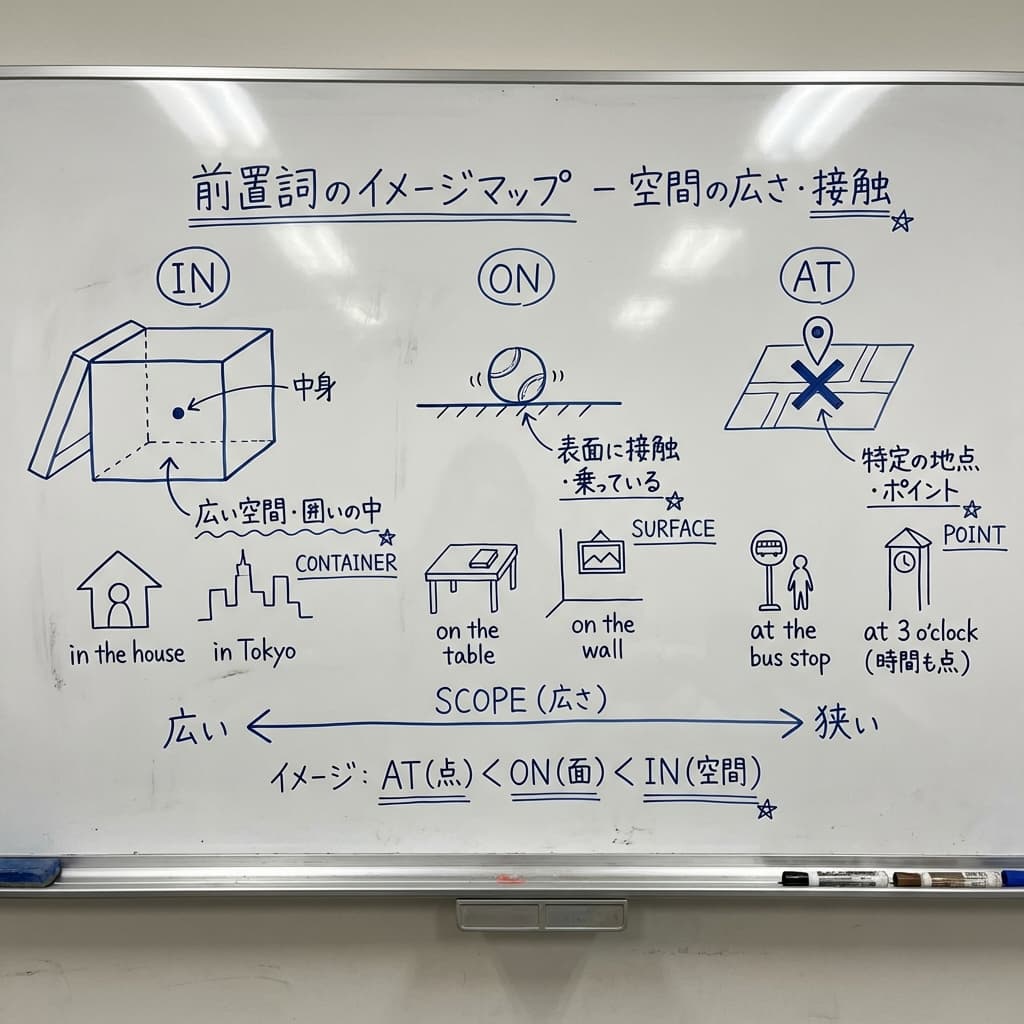 前置詞のイメージマップ － 空間の広さ・接触
IN
中身
広い空間・囲いの中
CONTAINER
in the house
in Tokyo
ON
表面に接触
・乗っている
SURFACE
on the
table
on the
wall
AT
特定の地点
・ポイント
POINT
at the
bus stop
at 3 o'clock
(時間も点)
SCOPE (広さ)
広い
狭い
イメージ: AT(点) < ON(面) < IN(空間)